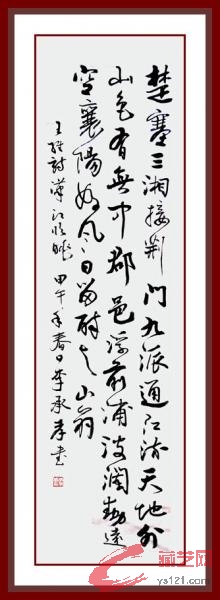 楚塞三湘接荆門九派通江流天地外
山色有無中郡邑浮前浦波澜動遠
空襄陽好风日留醉与山翁
王維詩漢江临眺 甲午年春日李承孝书
藏艺网
ys121.com